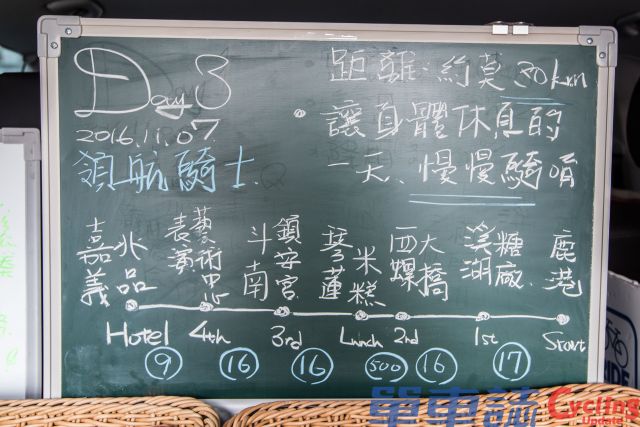 Day 3
2016.11.07
領航騎士.
距離:約莫30km
•讓身體休息的
一天、慢慢騎唷
嘉義 兆品
表演藝術中心
斗南 鎮安宮
琴蓮 米糕
西螺 大橋
溪湖 糖廠
鹿港
Hotel 4th 3rd Lunch 2nd 1st Start
9 16 16 500 16 17
單車誌 Cycling Update